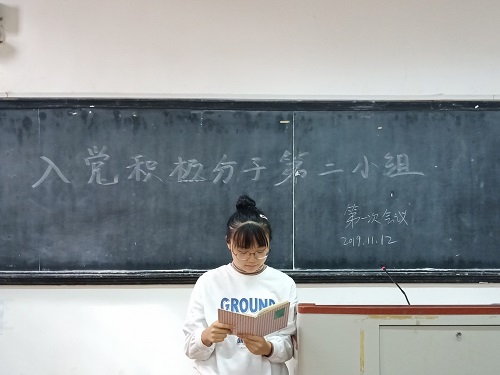 入党积极分子第二小组
第一次会议
2019.11.12
GROUND